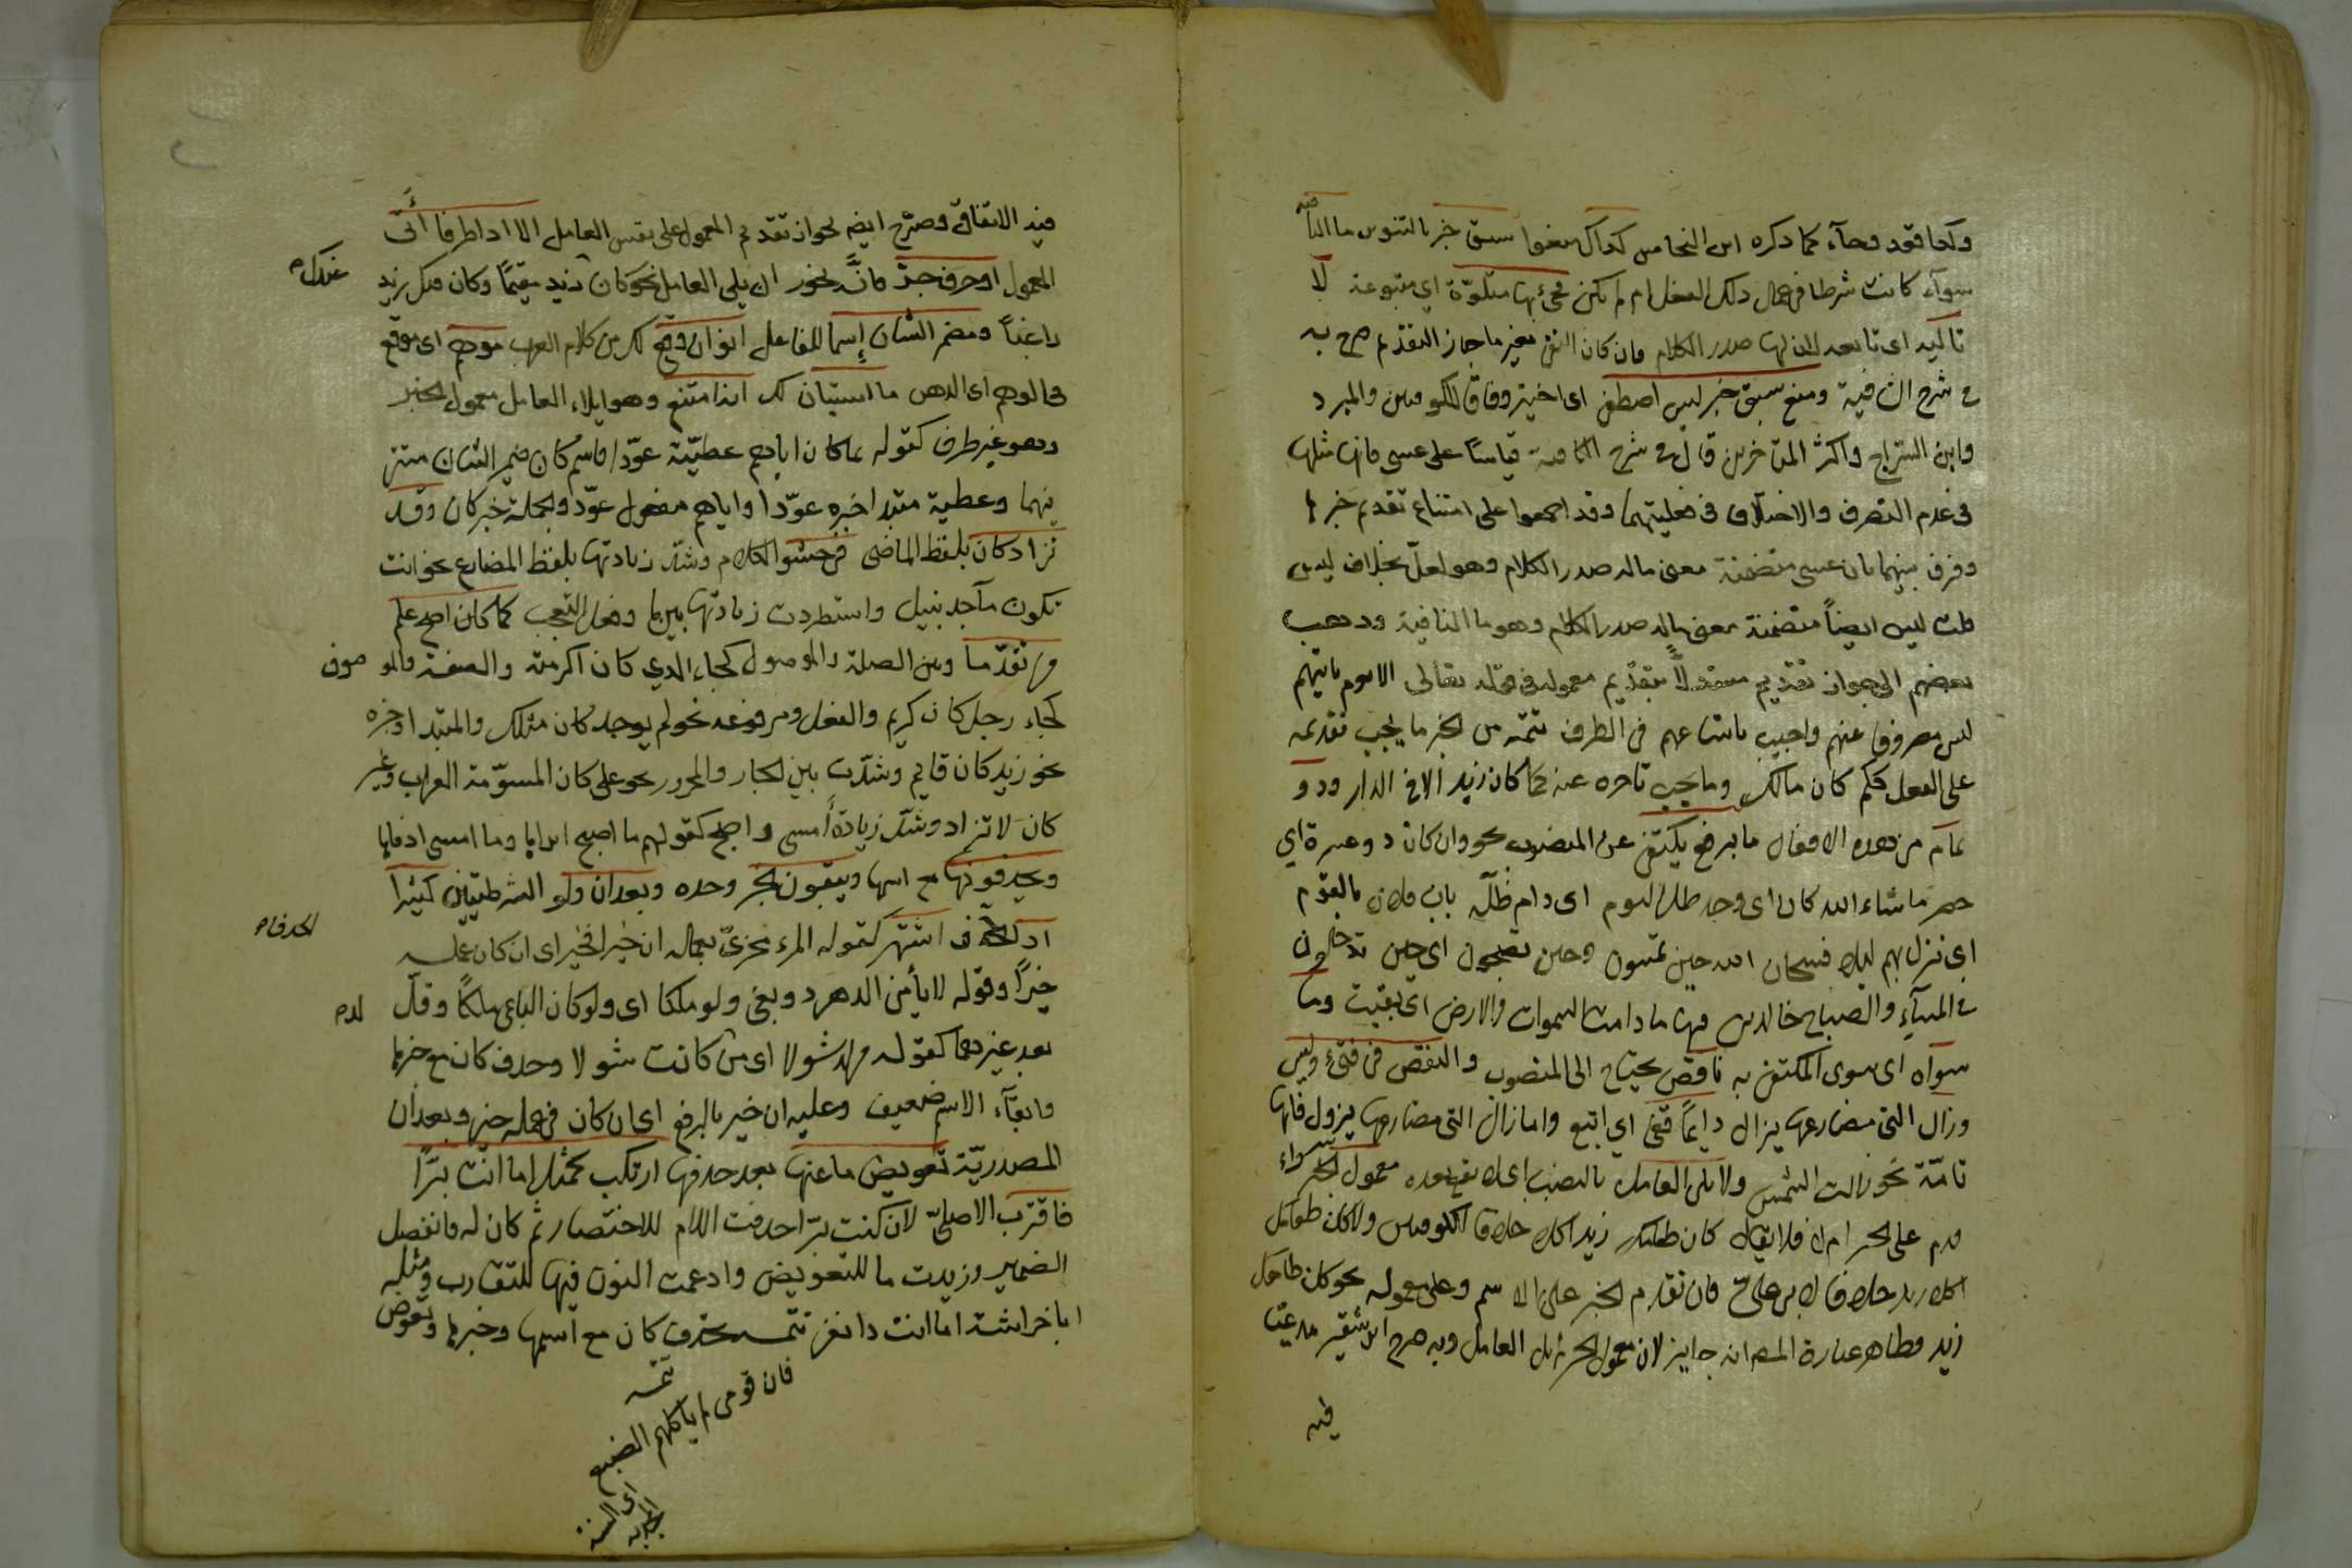 وكما قعد وجآء كما ذكره ابن النحاس كذاك منعوا سبق خبر بالتنوين ما النافيه
سوآء كانت شرطا في عمل ذلك الفعل ام لم تكن فجئ بها متلوّة اي متبوعة لا
تاليه اى تابعه لان لها صدر الكلام فان كان النفي بغير ما جاز التقديم صرح به
في شرح الكافية ومنع سبق خبر ليس اصطفي اى اختير وفاقا للكوفيين والمبرد
وابن السراج واكثر المتاخرين قال في شرح الكافية قياسًا على عسى فانها مثلها
في عدم التصرف والاختلاف في فعليتهما وقد اجمعوا على امتناع تقديم خبرها
وفرق بينهما بان عسى متضمنة معنى ماله صدر الكلام وهو لعلّ بخلاف ليس
قلت ليس ايضاً متضمنة معنى ماله صدر الكلام وهو ما النافية وذهب
بعضهم الى جواز تقديم مستدلاًّ بتقديم معموله في قوله تعالى الا يوم ياتيهم
ليس مصروفا عنهم واجيب باتساعهم في الظرف تتمة من الخبر ما يجب تقديمه
على الفعل ككم كان مالك وما يجب تاخره عنه كما كان زيد الا في الدار وذو
تمام من هذه الافعال ما برفع يكتفي عن المنصوب نحو وان كان ذو عسرة اي
حضر ما شاء الله كان اى وجد ظل اليوم اى دام ظلّه بات فلان بالقوم
اى نزل بهم ليلا فسبحان الله حين تمسون وحين تصبحون اى حين تدخلون
في المسآء والصباح خالدين فيها ما دامت السموات والارض اى بقيت وما
سواه اى سوى المكتفي به ناقص يحتاج الى المنصوب والنقص في فتئ وليس
وزال التي مضارعها يزال دايمًا قفي اي اتبع واما زال التي مضارعها يزول فانها
تامّة نحو زالت الشمس ولا يلي العامل بالنصب اي لا يقع بعده معمول الخبر سواء
قدم على الخبر ام لا فلا يقال كان طعامك زيد اكلا خلافا للكوفيين ولا كان طعامك
اكلا زيد خلافا لابي علي فان تقدم الخبر على الاسم وعلى معموله نحو كان اكلا طعامك
زيد فظاهر عبارة المصـ انه جايز لان معمول الخبر لم يل العامل وبه صرح ابن شقير مدعيًا
فيه
فيه الاتفاق وصرّح ايضـ بجواز تقديم المعمول على نفس العامل الا اذا ظرفا أَتى
المعمول او حرف جرّ فانَّه يجوز ان يلي العامل نحو كان عندك زيد مقيمًا وكان فيك زيد
راغباً ومضمر الشان إسما للفاعل انو ان وقع لك من كلام العرب موهم اى موقع
في الوهم اى الذهن ما استبان لك انه امتنع وهو ايلاء العامل معمول الخبر
وهو غير ظرف كقوله بما كان اياهم عطيّة عوّدا فاسم كان ضمير الشان مستتر
فيها وعطية مبتدا خبره عوّدا واياهم مفعول عوّد والجملة خبر كان وقد
تزاد كان بلفظ الماضى في حشو الكلام وشذّ زيادتها بلفظ المضارع نحو انت
تكون مآجد نبيل واستطردت زيادتها بين ما وفعل التعجب كما كان اصح علم
من تقدّما وبين الصلة والموصول كجاء الذي كان اكرمته والصفة والموصوف
كجاء رجل كان كريم والفعل ومرفوعه نحو لم يوجد كان مثلك والمبتدا وخبره
نحو زيد كان قايم وشذّت بين الجار والمجرور نحو على كان المسوّمة العراب وغير
كان لا تزاد وشذّ زيادة أمسى واصبح كقولهم ما اصبح ابردها وما امسى ادفاها
ويحذفونها مع اسمها ويبقون الخبر وحده وبعد ان ولو الشرطيتين كثيرا
ذا الحذف اشتهر كقوله المرء مجزىّ بعمله ان خيرا فخير اى ان كان عمله
خيرًا وقوله لا يأمن الدهر ذو بغي ولو ملكا اى ولو كان الباغي ملكًا وقلّ
بعد غيرهما كقوله من لد شولا اى من كانت شولا وحذف كان مع خبرها
وابقآء الاسم ضعيف وعليه ان خير بالرفع اى ان كان في عمله خير وبعد أن
المصدريّة تعويض ما عنها بعد حذفها ارتكب كمثل اما انت بَرًّا
فاقترب الاصليّ لان كنت برّا حذفت اللام للاختصار ثم كان له فانفصل
الضمير وزيدت ما للتعويض وادغمت النون فيها للتقارب ومثله
ابا خراشة اما انت ذا نفر تتمـه تحذف كان مع اسمها وخبرها وتعوض
تتمـه
فان قومي لم ياكلهم الضبع
اى السنة
المجدبه